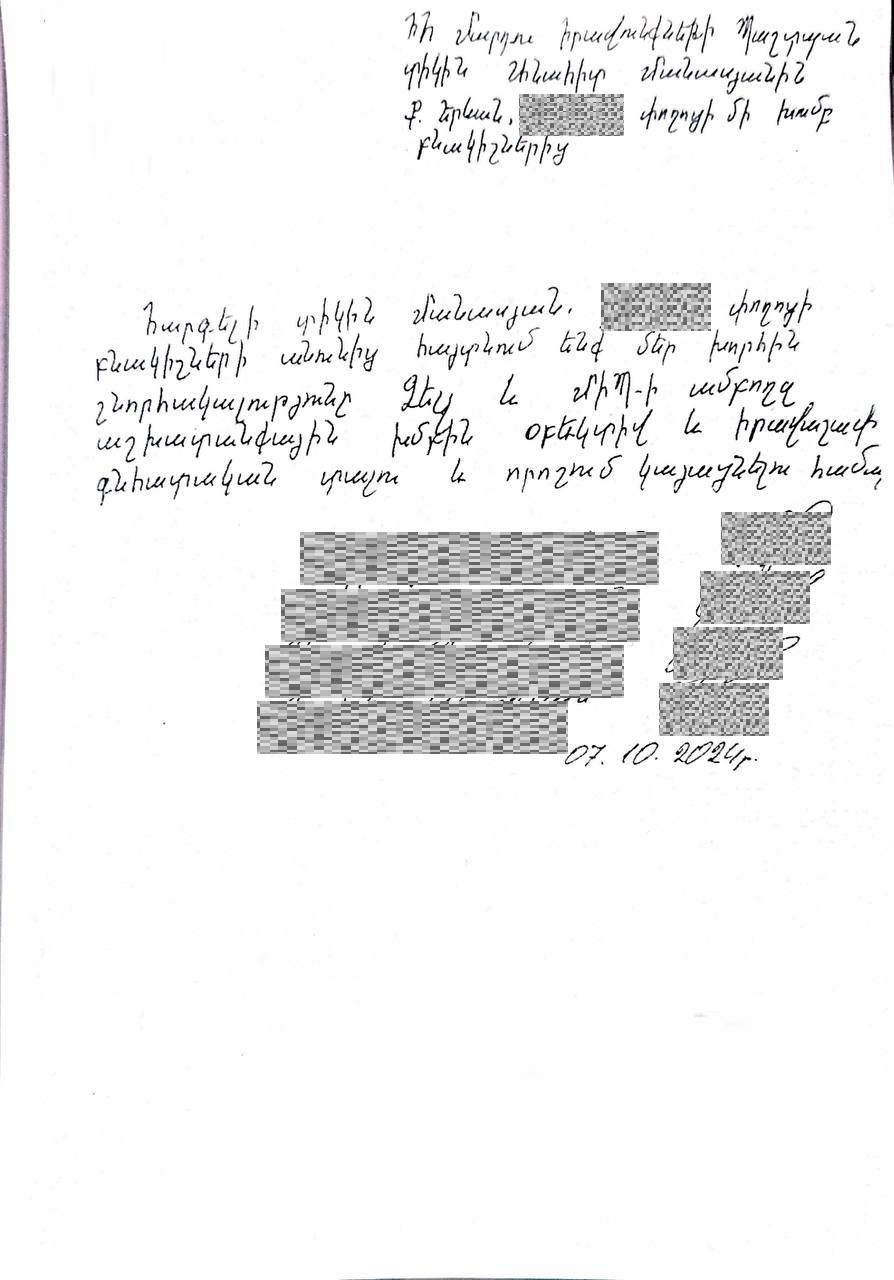 ՀՀ Մարդու իրավունքների Պաշտպան
տիկին Անահիտ Մանասյանին
Ք. Երևան, փողոցի մի խումբ
բնակիչներից
Հարգելի տիկին Մանասյան. փողոցի
բնակիչների անունից հայտնում ենք մեր խորին
շնորհակալությունը Ձեզ և ՄԻՊ-ի ամբողջ
աշխատանքային խմբին օբեկտիվ և իրավաչափ
գնահատական տալու և որոշում կայացնելու համար
07.10.2024թ.